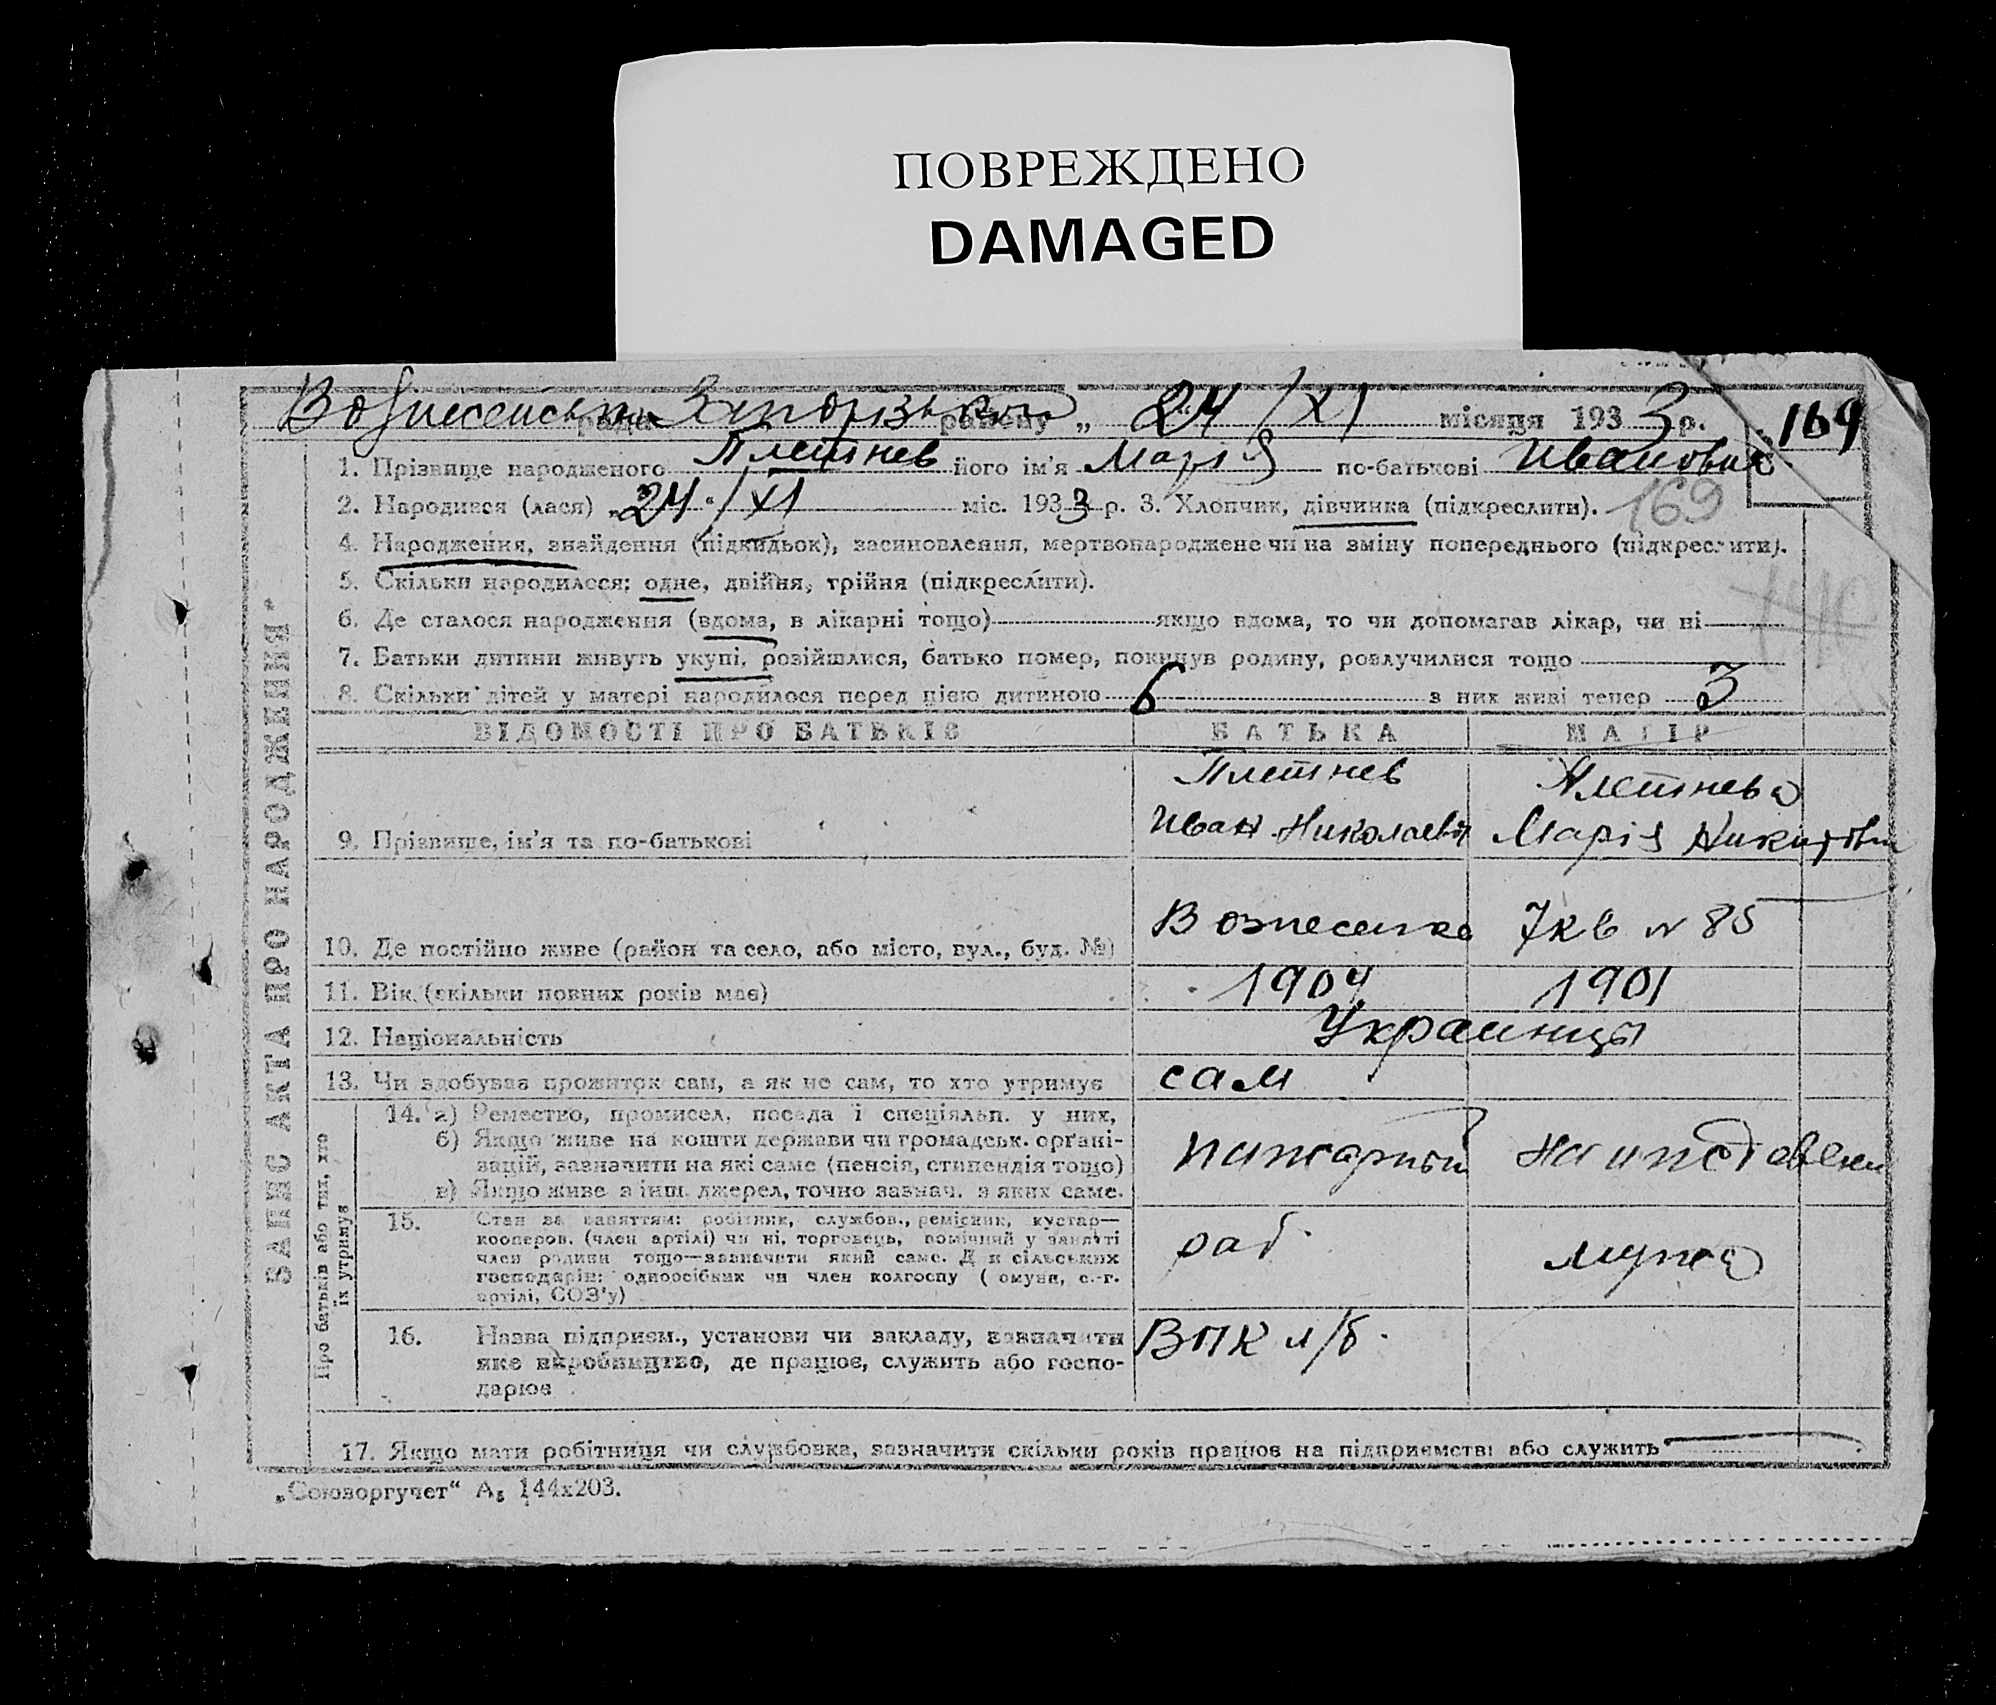 ПОВРЕЖДЕНО
DAMAGED
Вознесенська рада Запорізького району „ 24/XI місяця 1933 р. 169
1. Прізвище народженого Плетнев його ім'я Марія по-батькові Ивановна
2. Народився (лася) „24“/XI міс. 1933 р. 3. Хлопчик, дівчинка (підкреслити). 169
4. Народження, знайдення (підкидьок), засиновлення, мертвонароджене чи на зміну попереднього (підкреслити).
5. Скільки народилося: одне, двійня, трійня (підкреслити).
6. Де сталося народження (вдома, в лікарні тощо) якщо вдома, то чи допомагав лікар, чи ні
7. Батьки дитини живуть укупі, розійшлися, батько помер, покинув родину, розлучилися тощо
8. Скільки дітей у матері народилося перед цією дитиною 6 з них живі тепер 3
ЗАПИС АКТА ПРО НАРОДЖЕННЯ
ВІДОМОСТІ ПРО БАТЬКІВ БАТЬКА МАТІР
Плетнев Плетнева
9. Прізвище, ім'я та по-батькові Иван Николаевич Марія Никитовн
10. Де постійно живе (район та село, або місто, вул., буд. №) Вознесенка 7 кв N 85
11. Вік (скільки повних років має) 1904 1901
12. Національність Украинцы
13. Чи здобував прожиток сам, а як не сам, то хто утримує сам
Про батьків або тих, хто їх утримує
14. а) Ремество, промисел, посада і спеціяльн. у них,
б) Якщо живе на кошти держави чи громадськ. органі-
зацій, зазначити на які саме (пенсія, стипендія тощо) пажарный на иждевени
в) Якщо живе з інш. джерел, точно зазнач. з яких саме.
15. Стан за заняттям: робітник, службов., ремісник, кустар—
кооперов. (член артілі) чи ні, торговець, помічний у занятті
член родини тощо—зазначити який саме. Для сільських раб. мужа
господарів: одноосібник чи член колгоспу (комуни, с.-г.
артілі, СОЗ'у)
16. Назва підприєм., установи чи закладу, зазначити ВПК
яке виробництво, де працює, служить або госпо-
дарює
17. Якщо мати робітниця чи службовка, зазначити скільки років працює на підприємстві або служить
„Союзоргучет“ А5 144х203.